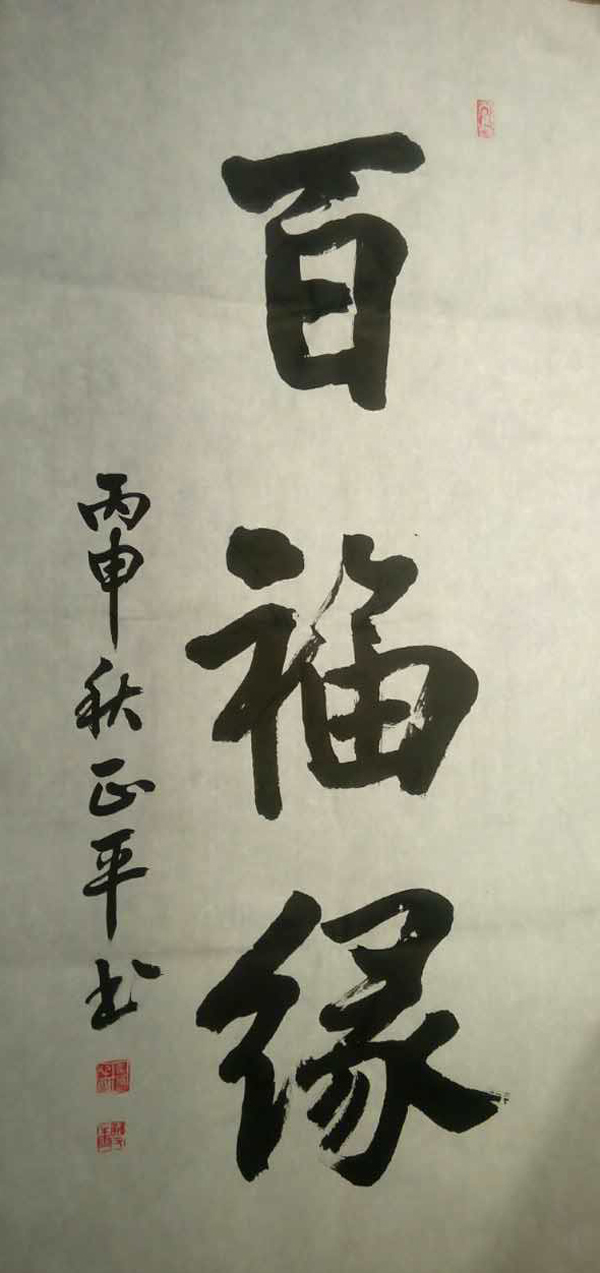 百福缘
丙申秋正平书